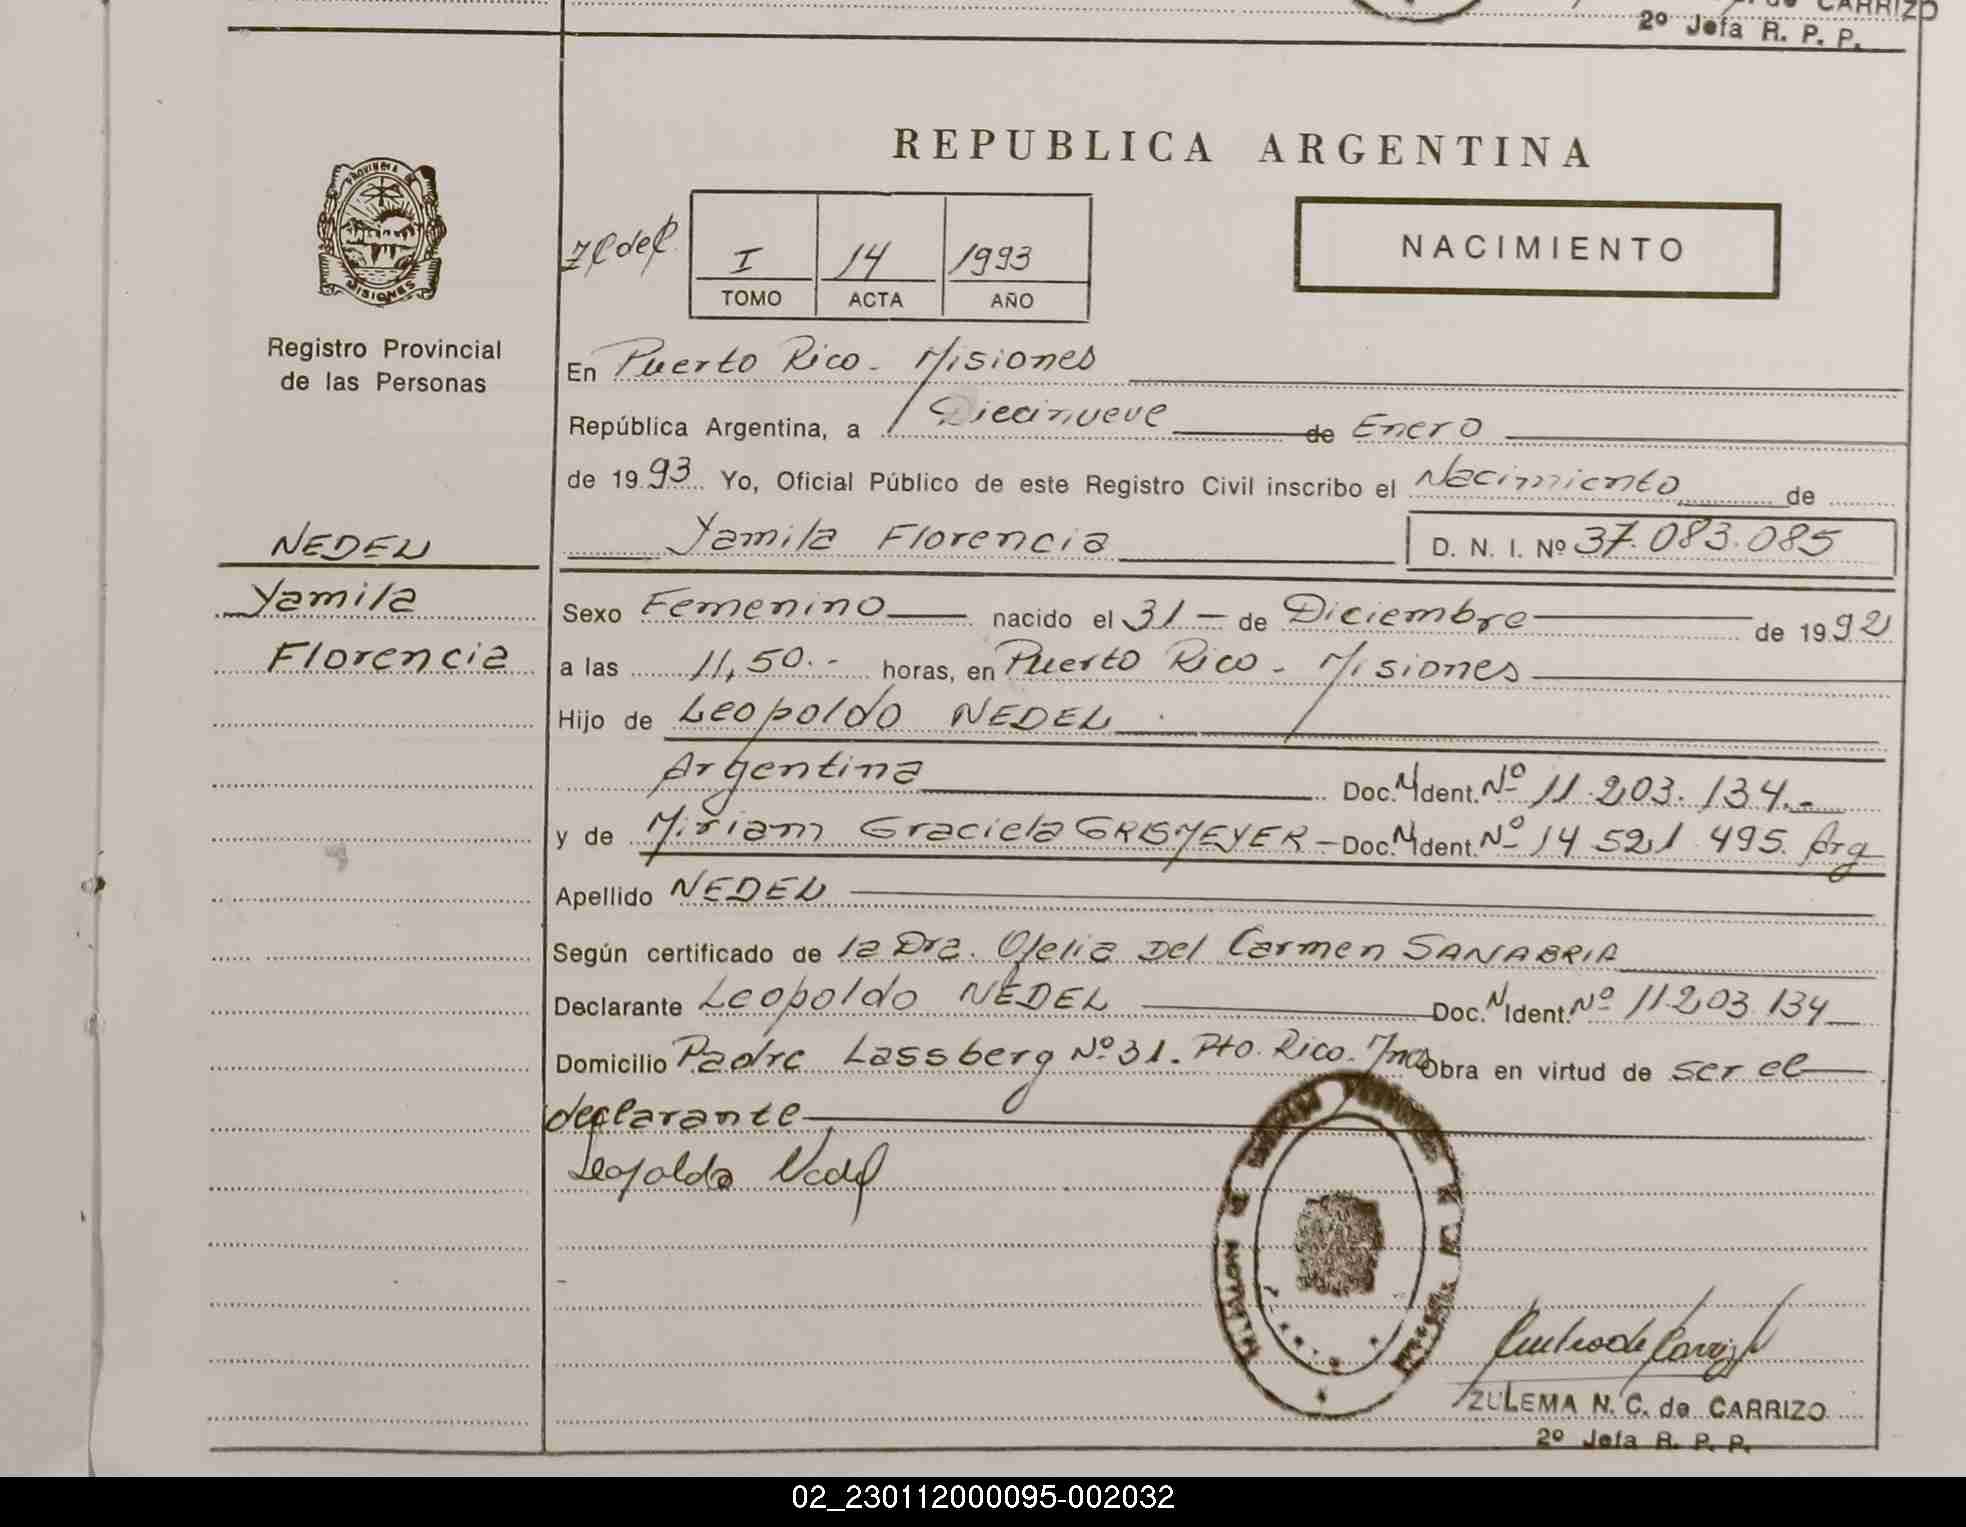 CARRIZO
2º Jefa R. P. P.
REPUBLICA ARGENTINA
PROVINCIA DE
MISIONES
Registro Provincial
de las Personas
I 14 1993
TOMO ACTA AÑO
NACIMIENTO
En Puerto Rico - Misiones
República Argentina, a Diecinueve de Enero
de 1993 Yo, Oficial Público de este Registro Civil inscribo el Nacimiento de
Yamila Florencia D. N. I. Nº 37.083.085
NEDEL
Yamila
Florencia
Sexo Femenino nacido el 31 - de Diciembre de 1992
a las 11,50.- horas, en Puerto Rico - Misiones
Hijo de Leopoldo NEDEL
Argentina Doc. N Ident. Nº 11.203.134.-
y de Miriam Graciela GRISMEYER - Doc. N Ident. Nº 14 521 495. Arg
Apellido NEDEL
Según certificado de la Dra. Ofelia Del Carmen SANABRIA
Declarante Leopoldo NEDEL Doc. N Ident. Nº 11.203.134
Domicilio Padre Lassberg Nº 31. Pto. Rico. Mnes Obra en virtud de ser el
declarante
Leopoldo Nedel
ZULEMA N. C. de CARRIZO
2º Jefa R. P. P.
02_230112000095-002032